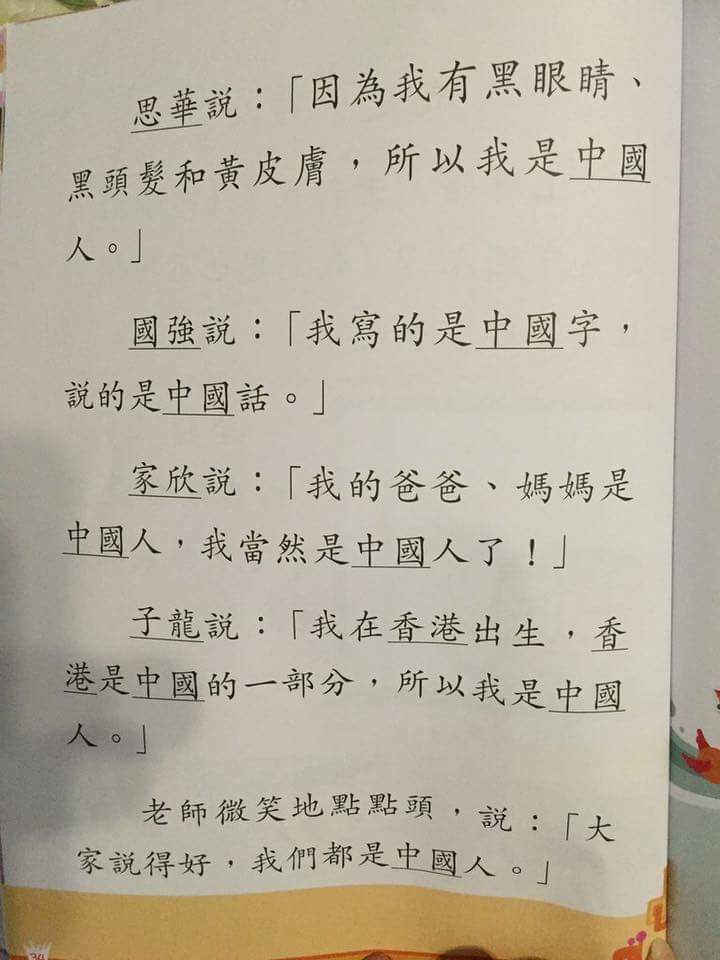 思華說：「因為我有黑眼睛、
黑頭髮和黃皮膚，所以我是中國
人。」
國強說：「我寫的是中國字，
說的是中國話。」
家欣說：「我的爸爸、媽媽是
中國人，我當然是中國人了！」
子龍說：「我在香港出生，香
港是中國的一部分，所以我是中國
人。」
老師微笑地點點頭，說：「大
家說得好，我們都是中國人。」
34